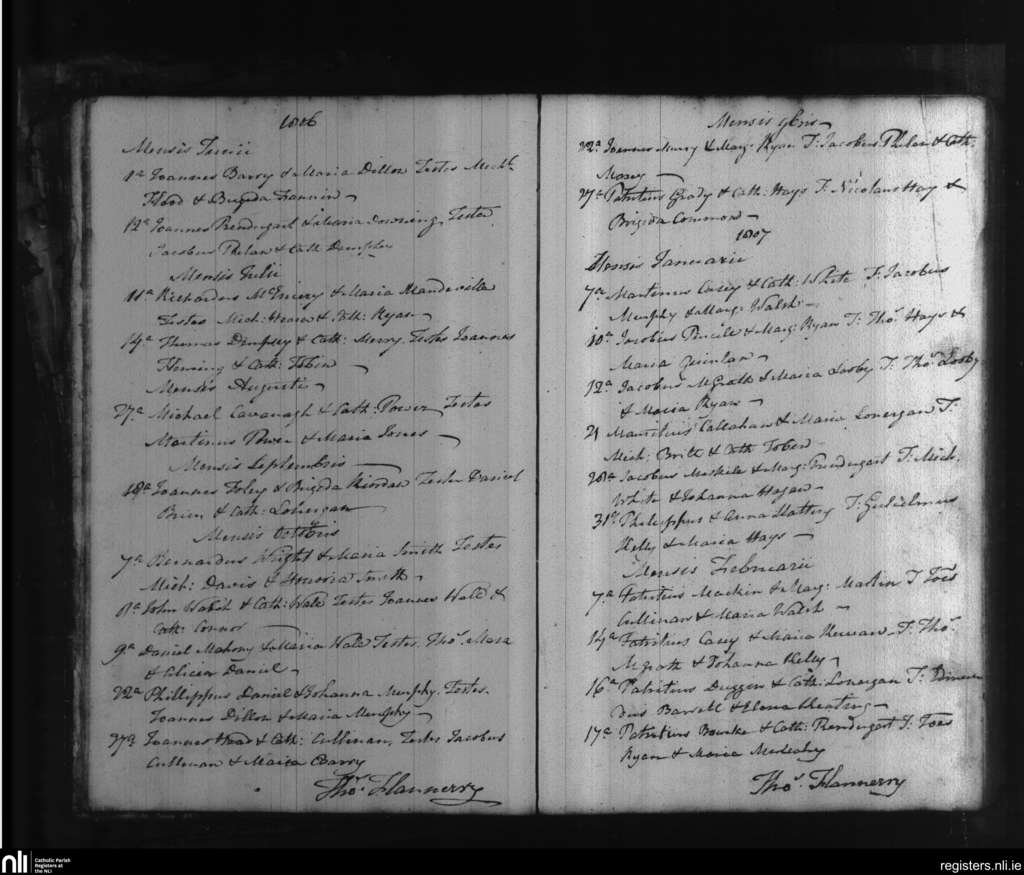 1806
Mensis Junii
1a Joannes Barry & Maria Dillon Testes Michl
Flood & Brigida Fannin
12a Joannes Prendergast & Maria Downing, Testes
Jacobus Phelan & Cath Dempsey
Mensis Julii
11a Richardus McEniery & Maria Mandeville
Testes Mich: & Cath: Ryan
14a Thomas Dempsey & Cath: Merry, Testes Joannes
Fleming & Cath: Tobin
Mensis Augusti
27a Michael Cavanagh & Cath: Power Testes
Martinus Power & Maria Jones
Mensis Septembris
18a Joannes Foley & Brigida Riordan Testes Daniel
Brien & Cath: Lonergan
Mensis Octobris
7a Bernardus Wright & Maria Smith Testes
Mich: Davis & Honoria Smith
8a John Walsh & Cath: Wale Testes Joannes Wale &
Cath: Connor
9a Daniel Mahony & Maria Wale Testes Thos. Mara
& Elicia Daniel
22a Phillippus Daniel & Johanna Murphy. Testes.
Joannes Dillon & Maria Murphy
Joannes Head & Cath: Cullinan, Testes Jacobus
Cullinan & Maria Barry
Thos. Flannerry
Mensis 9bris
22a Joannes Murry & Marg: Ryan T: Jacobus Phelan & Cath:
27a Patritius Grady & Cath: Hays T: Nicolaus Hay &
Brigida Common
1807
Mensis Januarii
7a Martinus Casey & Cath: White T: Jacobus
Murphy & Marg: Walsh
10a Jacobus & Marg: Ryan T: Thos. Hays &
Maria Quinlan
12a Jacobus McGrath & Maria Looby T: Thos. Looby
& Maria Ryan
21 Mauritius Callahan & Maria Lonergan T:
Mich: Britt & Cath Tobin
28a Jacobus & Marg: Prendergast T: Mich.
White & Johanna Hogan
31a Philippus & Anna Slattery T: Gulielmus
Kelly & Maria Hays
Mensis Februarii
7a Patritius Mackin & Marg: Mackin T Joes
Cullinan & Maria Walsh
14a Patritius Casey & Maria Kerwan T: Thos.
McGrath & Johanna Kelly
16a Patritius Duggen & Cath: Lonergan T:
Barrell & Elena Keating
17a Patritius Bourke & Cath: Prendergast T: Joes
Ryan & Maria
Thos. Flannerry
nli
Catholic Parish
Registers at
the NLI
registers.nli.ie